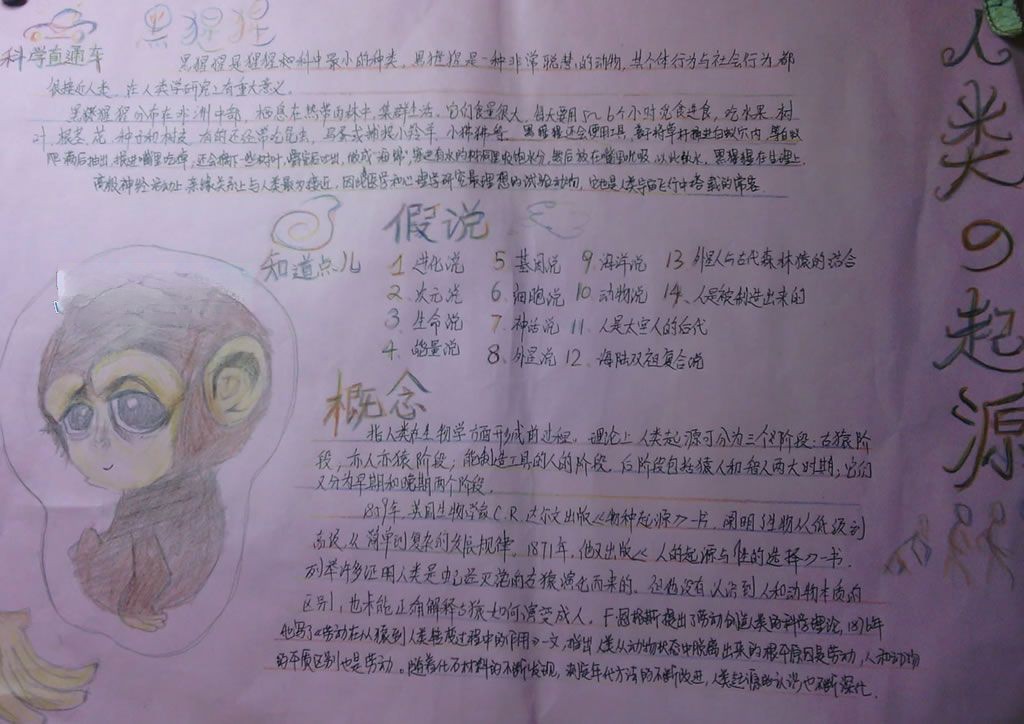 科学直通车
黑猩猩
人类の起源
黑猩猩是猩猩科中最小的种类，黑猩猩是一种非常聪慧的动物，其个体行为与社会行为都
很接近人类，在人类学研究上有重大意义。
黑猩猩分布在非洲中部，栖息在热带雨林中，集群生活。它们食量很大，每天要用5~6个小时觅食进食，吃水果、树
叶、根茎、花、种子和树皮，有的还经常吃昆虫、鸟蛋或捕捉小羚羊、小狒狒等。黑猩猩还会使用工具，
然后放在嘴里吮吸，以此饮水。黑猩猩在生理上、
高级神经活动上、亲缘关系上与人类最为接近，因此是医学和心理学研究最理想的试验动物，它也是人类宇宙飞行中搭载的常客。
假说
知道点儿
1、进化说 5、基因说 9、海洋说 13、外星人与古代森林猿的结合
2、次元说 6、细胞说 10、动物说 14、人是被制造出来的
3、生命说 7、神话说 11、人是太空人的后代
4、能量说 8、外星说 12、海陆双祖复合说
概念
指人类在生物学方面形成前过程。理论上人类起源可分为三个阶段：古猿阶
段；亦人亦猿阶段；能制造工具的人的阶段，后阶段包括猿人和智人两大时期，它们
又分为早期和晚期两个阶段。
1859年，英国生物学家C.R.达尔文出版《物种起源》一书，阐明了生物从低级到
高级，从简单到复杂的发展规律。1871年，他又出版《人的起源与性的选择》一书，
列举许多证明人类是由已经灭绝的古猿演化而来的。但他没有认识到人和动物本质的
区别，也未能正确解释古猿如何演变成人。F·恩格斯提出了劳动创造人类的科学理论，1876年
他写了《劳动在从猿到人类转变过程中的作用》一文，指出人类从动物状态中脱离出来的根本原因是劳动，人和动物
的本质区别也是劳动。随着化石材料的不断发现，测定年代方法的不断改进，人类起源的认识也不断深化。